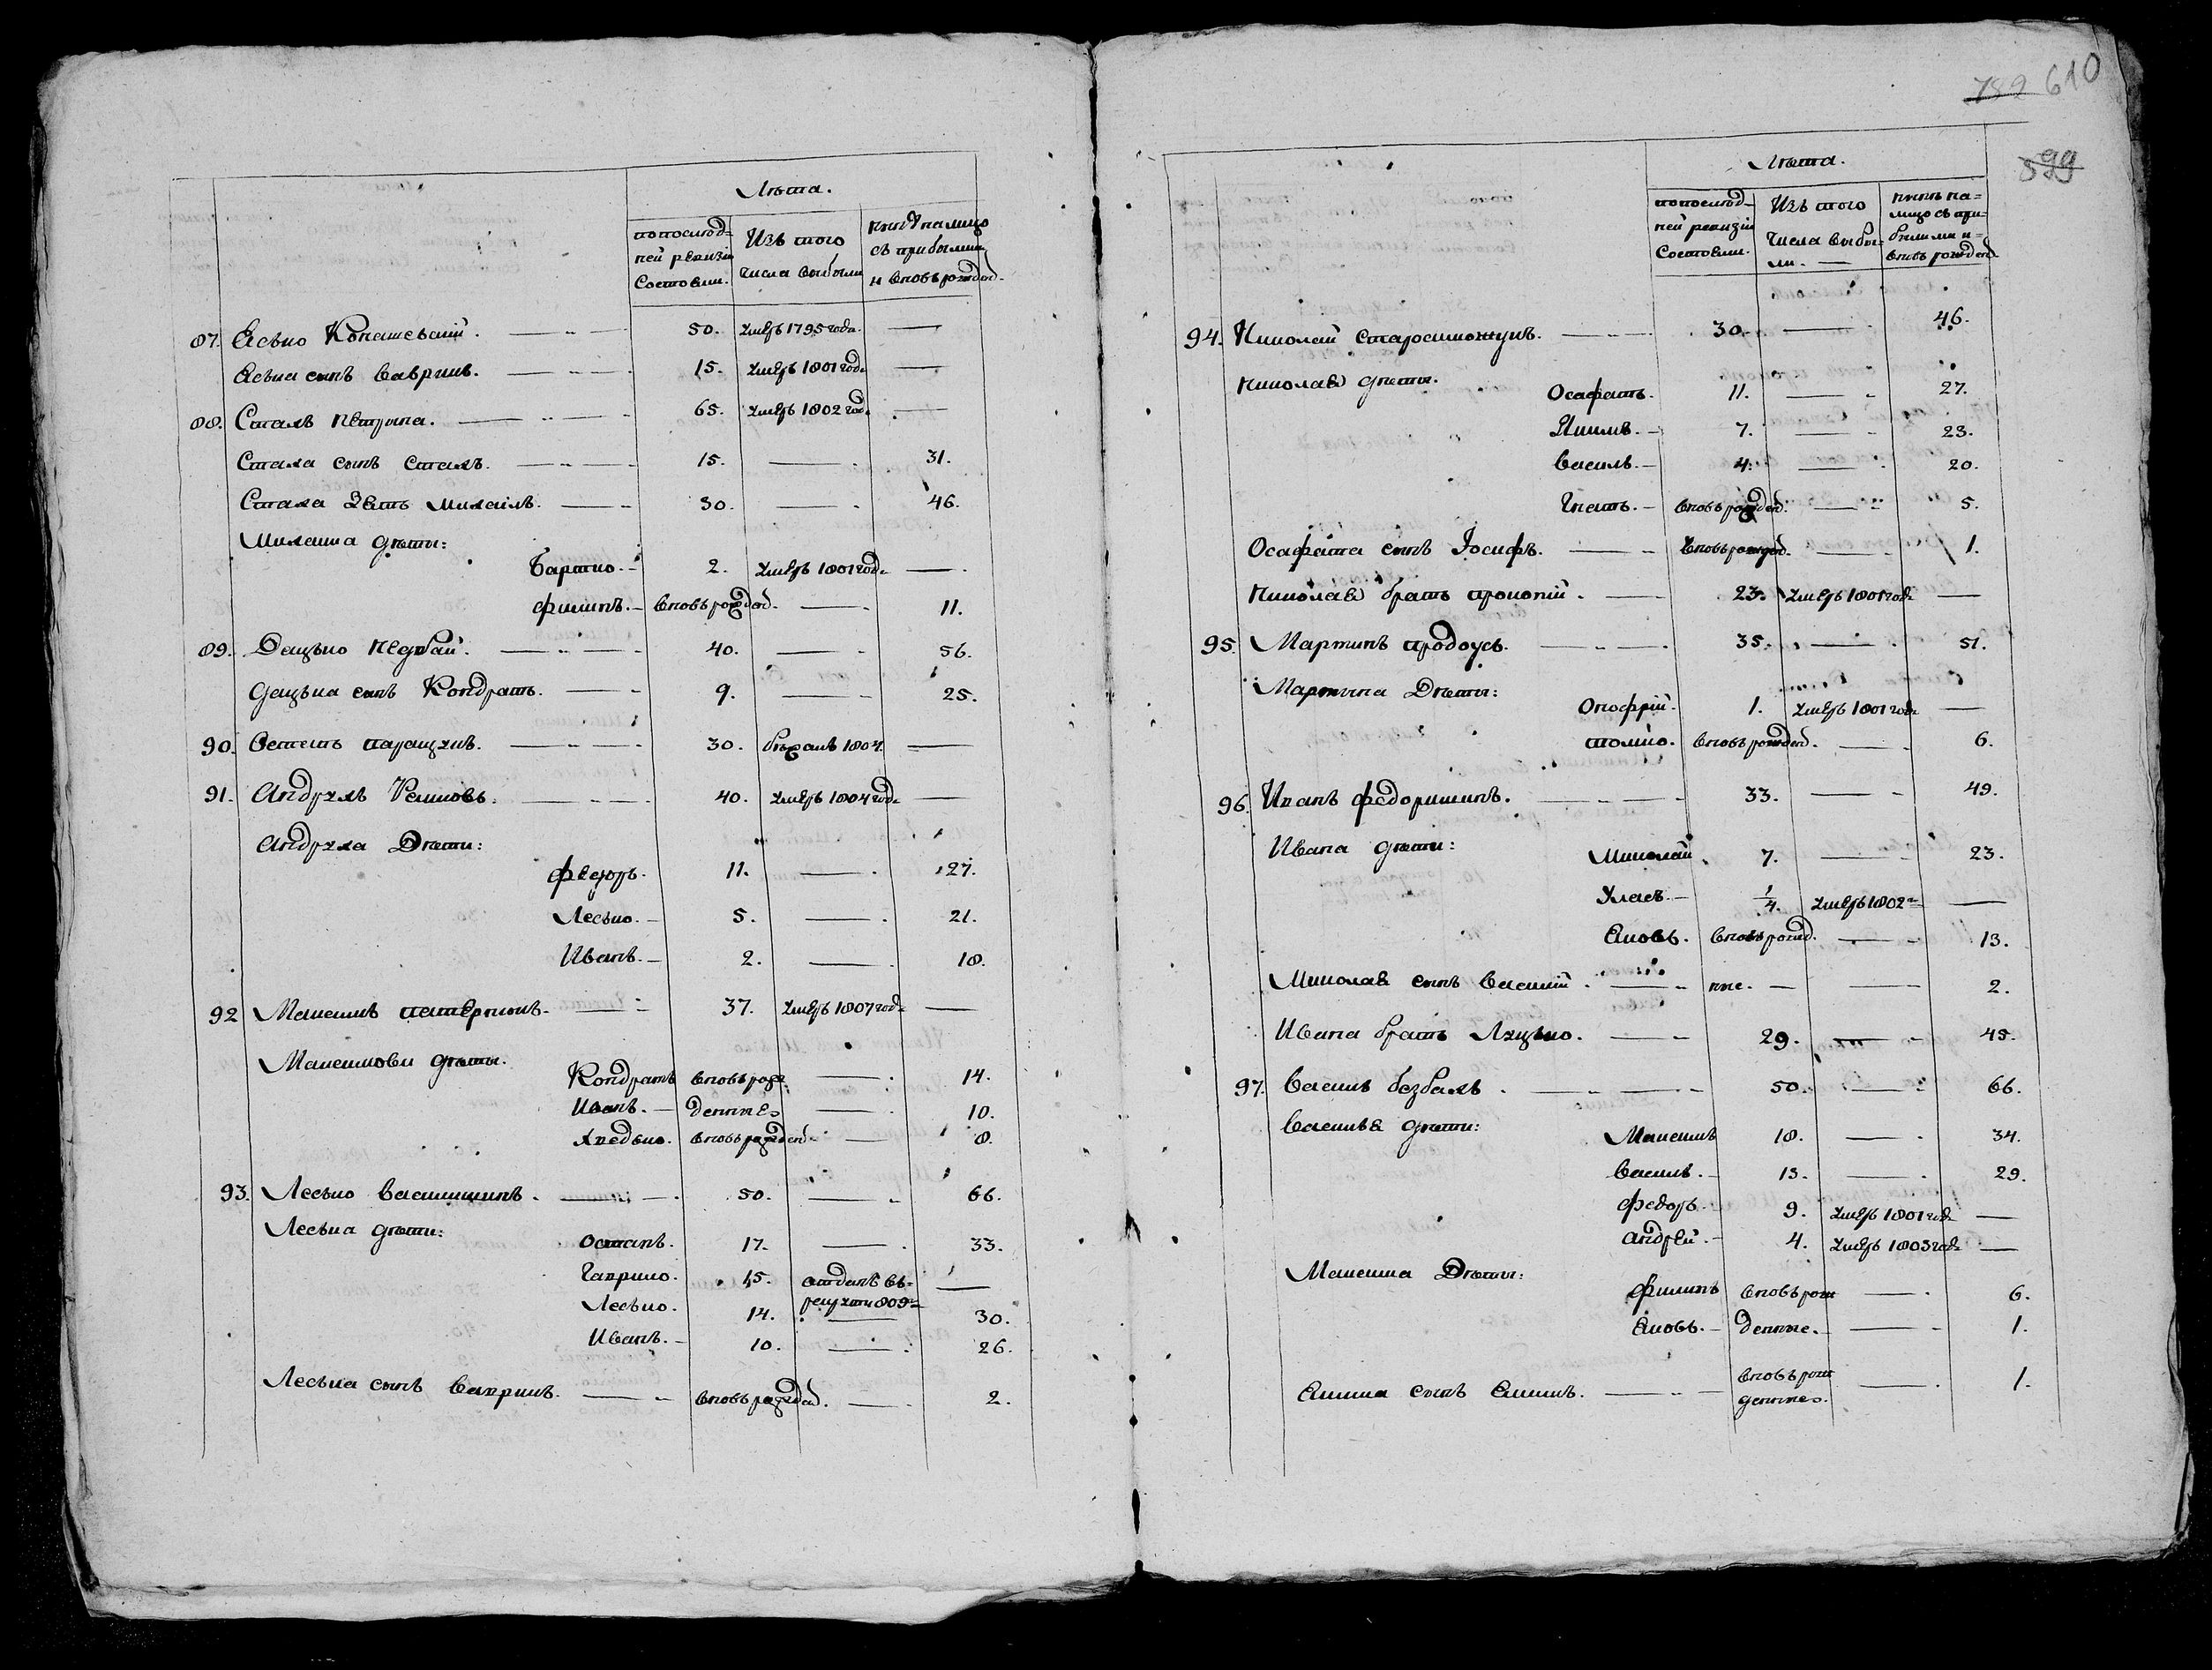 Лѣта.
попослѣд-
ней ревизіи
Состояли.
Изъ того
числа выбыли
нынѣ налицо
съ прибылими
и вновь рожден.
87. Яско Копашевскій. 50. умеръ 1795 года. —
Яська сынъ Гавриилъ. 15. умеръ 1801 года —
88. Стахъ Петрина. 65. умеръ 1802 года —
Стаха сынъ Стахъ. 15. — 31.
Стаха Зять Михаилъ. 30. — 46.
Михаила дѣти:
Бартко. 2. умеръ 1801 года —
Филипъ. вновь рожден. — 11.
89. Дацько Недбай. 40. — 56.
Дацька сынъ Кондратъ. 9. — 25.
90. Остапъ 30. бѣжалъ 1804. —
91. Андрухъ 40. умеръ 1804 года —
Андруха Дѣти:
Федоръ. 11. — 27.
Леско. 5. — 21.
Иванъ. 2. — 18.
92 Максимъ 37. умеръ 1807 года —
Максимови дѣти.
Кондратъ вновь рож — 14.
Иванъ. денные — 10.
Хведько. вновь рожден. — 8.
93. Леско Василишинъ. 50. — 66.
Леська дѣти:
Остапъ. 17. — 33.
Гаврило. 15. отданъ въ рекруты 809 г. —
Леско. 14. — 30.
Иванъ. 10. — 26.
Леська сынъ Гавриилъ. вновь рожден. — 2.
789 610
599
Лѣта.
попослѣд-
ней ревизіи
Состояли.
Изъ того
числа выбы-
ли. —
нынѣ на-
лицо съ при-
былими и
вновь рожден
94. Николай 30. — 46.
Николая дѣти.
Осафатъ. 11. — 27.
Якимъ. 7. — 23.
Василь. 4. — 20.
Гнатъ. вновь рожден. — 5.
Осафата сынъ Іосифъ. вновь рожден. — 1.
Николая братъ Прокопій. 23. умеръ 1801 года —
95. Мартинъ Продоусъ. 35. — 51.
Мартина Дѣти:
Онофрій. 1. умеръ 1801 года —
Томко. вновь рожден. — 6.
96. Иванъ Федоришинъ. 33. — 49.
Ивана дѣти:
Миколай. 7. — 23.
Улась. 1/4. умеръ 1802 г. —
Яковъ. вновь рожд. — 13.
Миколая сынъ Василій. нне. — 2.
Ивана братъ Луцко. 29. — 45.
97. Василь Безбахъ. 50. — 66.
Василя дѣти:
Максимъ 18. — 34.
Василь. 13. — 29.
Федоръ. 9. умеръ 1801 года —
Андрей. 4. умеръ 1803 года —
Максима Дѣти:
Филипъ вновь рож — 6.
Яковъ. денные. — 1.
Якима сынъ Якимъ. вновь рож денные. — 1.